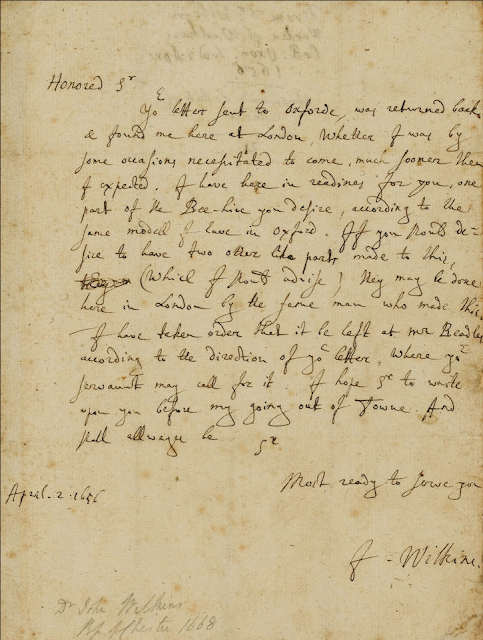 Honored Sr
Yor letter sent to Oxforde, was returned back
& found me here at London, Whether I was by
some occasions necessitated to come, much sooner then
I expected. I have here in readines for you, one
part of the Bee-hive you desire, according to the
same modell I have in Oxford. If you should de=
sire to have two other like parts made to this,
(Which I should advise) they may be done
here in London by the same man who made this,
I have taken order that it be left at mr Beadles
according to the direction of yor letter, Where yor
servaunt may call for it I hope Sr to waite
upon you before my going out of Towne. And
shall allwayes be
Sr
Most ready to serve you
April. 2. 1656
J - Wilkins.
Dr John Wilkins
Bp of Chester 1668